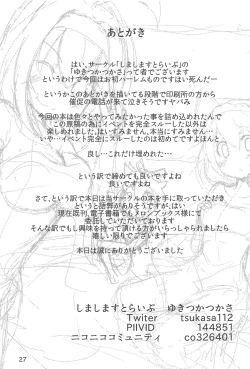 あとがき
はい、サークル「しましまとらいぷ」の
「ゆきつかつかさ」って者でございます
というわけで今回はお初ハーレムものですはい死んだー
というかこのあとがきを描いてる段階で印刷所の方から
催促の電話が来て泣きそうですヤバみ
今回の本は色々とやってみたかった事を詰め込めれたんで
この原稿の為にイベントを完全スルーした以外は
楽しめれました、はいすみません、本当にすみません…
いや…イベント完全にスルーしたのは初めてですよほんと
良し…これだけ埋めれた…
という訳で締めても良いですよね
良いですよね
さて、という訳で本日は当サークルの本を手に取っていただき
というと語弊がありそうですが、はい
現在既刊、電子書籍でもメロンブックス様にて
委託していただいております
そんな訳でもし興味を持って頂ける方がいらっしゃれましたら
どうぞよろしくお願いします
本日は誠にありがとうございました
しましまとらいぷ ゆきつかつかさ
Twiter tsukasa112
PIIVID 144851
ニコニココミュニティ co326401
27